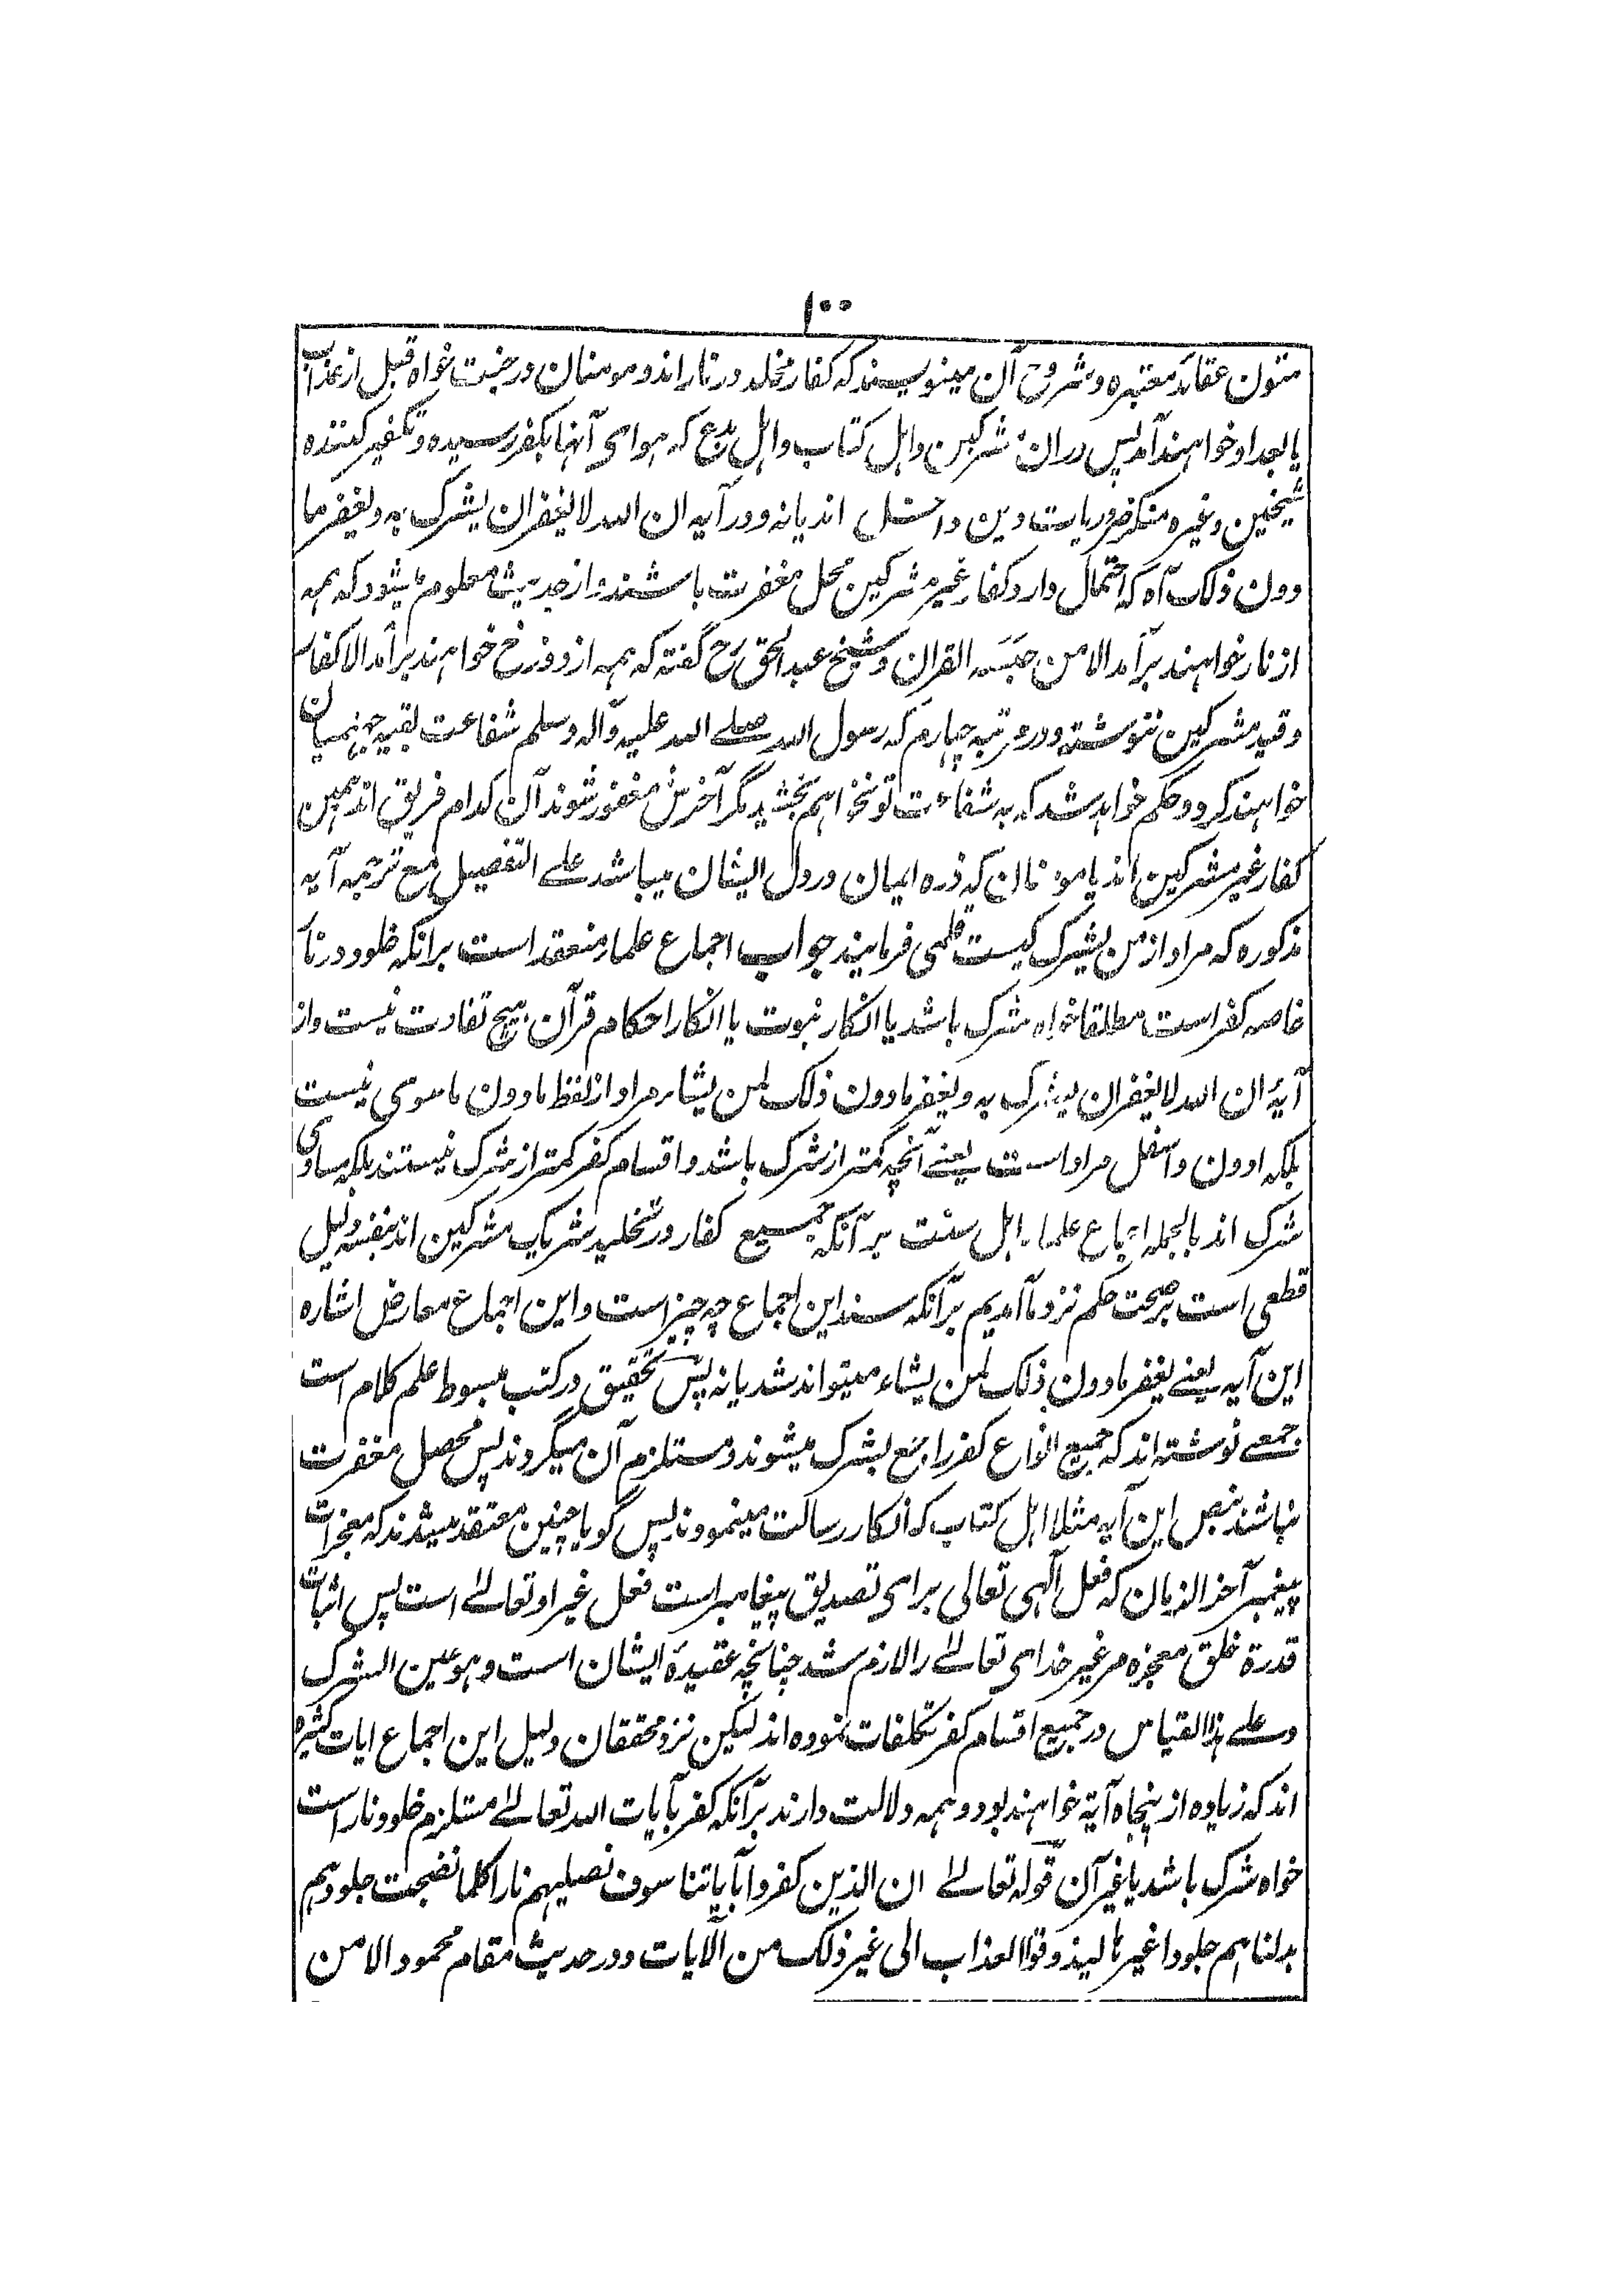 ۱۰۰
متون عقائد معتبره و شروح آن مینویسند که کفار مخلد در نار اند و مومنان در جنت خواه قبل از عذاب
یا بعد او خواهند آمد پس در ان مشرکین و اہل کتاب و اہل بدع که ہوای آنہا بکفر رسیده و تکفیر کننده
شیخین و غیره منکر ضروریات دین داخل اند یا نه و در آیه ان الله لا یغفر ان یشرک به و یغفر ما
دون ذلک آه که احتمال دارد کفار غیر مشرکین محل مغفرت باشند و از حدیث معلوم میشود که ہمه
از نار خواہند برآمد الا من حبسه القران و شیخ عبد الحق رح گفته که ہمه از دوزخ خواہند برآمد الا کفار
و قید مشرکین ننوشته و در مرتبه چہارم که رسول الله صلے الله علیه و آله و سلم شفاعت بقیه جہنمیان
خواہند کرد و حکم خواہد شد که به شفاعت تو نخواہم بخشید مگر آخرش مغفور شوند آن کدام فریق اند ہمین
کفار غیر مشرکین اند یا مومنان که ذره ایمان در دل ایشان میباشد علے التفصیل مع ترجمه آیه
مذکوره که مراد از من یشرک کیست قلمی فرمایند جواب اجماع علماء منعقد است برانکه خلود در نار
خاصه کفر است مطلقا خواه شرک باشد یا انکار نبوت یا انکار احکام قرآن ہیچ تفاوت نیست و از
آیۀ ان الله لا یغفر ان یشرک به و یغفر ما دون ذلک لمن یشاء مراد از لفظ ما دون ما سوی نیست
بلکه ادون و اسفل مراد است یعنے آنچه کمتر از شرک باشد و اقسام کفر کمتر از شرک نیستند بلکه مساوی
شرک اند بالجمله اجماع علماء اہل سنت برآنکه جمیع کفار در تخلید شریک مشرکین اند بنفسه دلیل
قطعی است بر صحت حکم نزد ما آمدیم برآنکه سند این اجماع چه چیز است و این اجماع معارض اشاره
این آیه یعنے یغفر ما دون ذلک لمن یشاء میتواند شد یا نه پس تحقیق در کتب مبسوط علم کلام است
جمعے نوشته اند که جمیع انواع کفر راجع بشرک میشوند و مستلزم آن میگردند پس محصل مغفرت
نباشند بنص این آیه مثلا اہل کتاب که انکار رسالت مینمودند پس گویا چنین معتقد میشدند که معجزات
پیغمبر آخر الزمان که فعل آلہی تعالی برای تصدیق پیغامبر است فعل غیر او تعالےٰ است پس اثبات
قدرة خلق معجزه مر غیر خدای تعالےٰ را لازم شد چنانچه عقیدۀ ایشان است و ہو عین الشرک
و علے ہذا القیاس در جمیع اقسام کفر تکلفات نموده اند لیکن نزد محققان دلیل این اجماع ایات کثیره
اند که زیاده از پنجاه آیۀ خواہند بود و ہمه دلالت دارند برآنکه کفر بآیات الله تعالےٰ مستلزم خلود نار است
خواه شرک باشد یا غیر آن قوله تعالےٰ ان الذین کفروا بآیاتنا سوف نصلیہم نارا کلما نضجت جلودہم
بدلناہم جلودا غیرہا لیذوقوا العذاب الی غیر ذلک من الآیات و در حدیث مقام محمود الا من